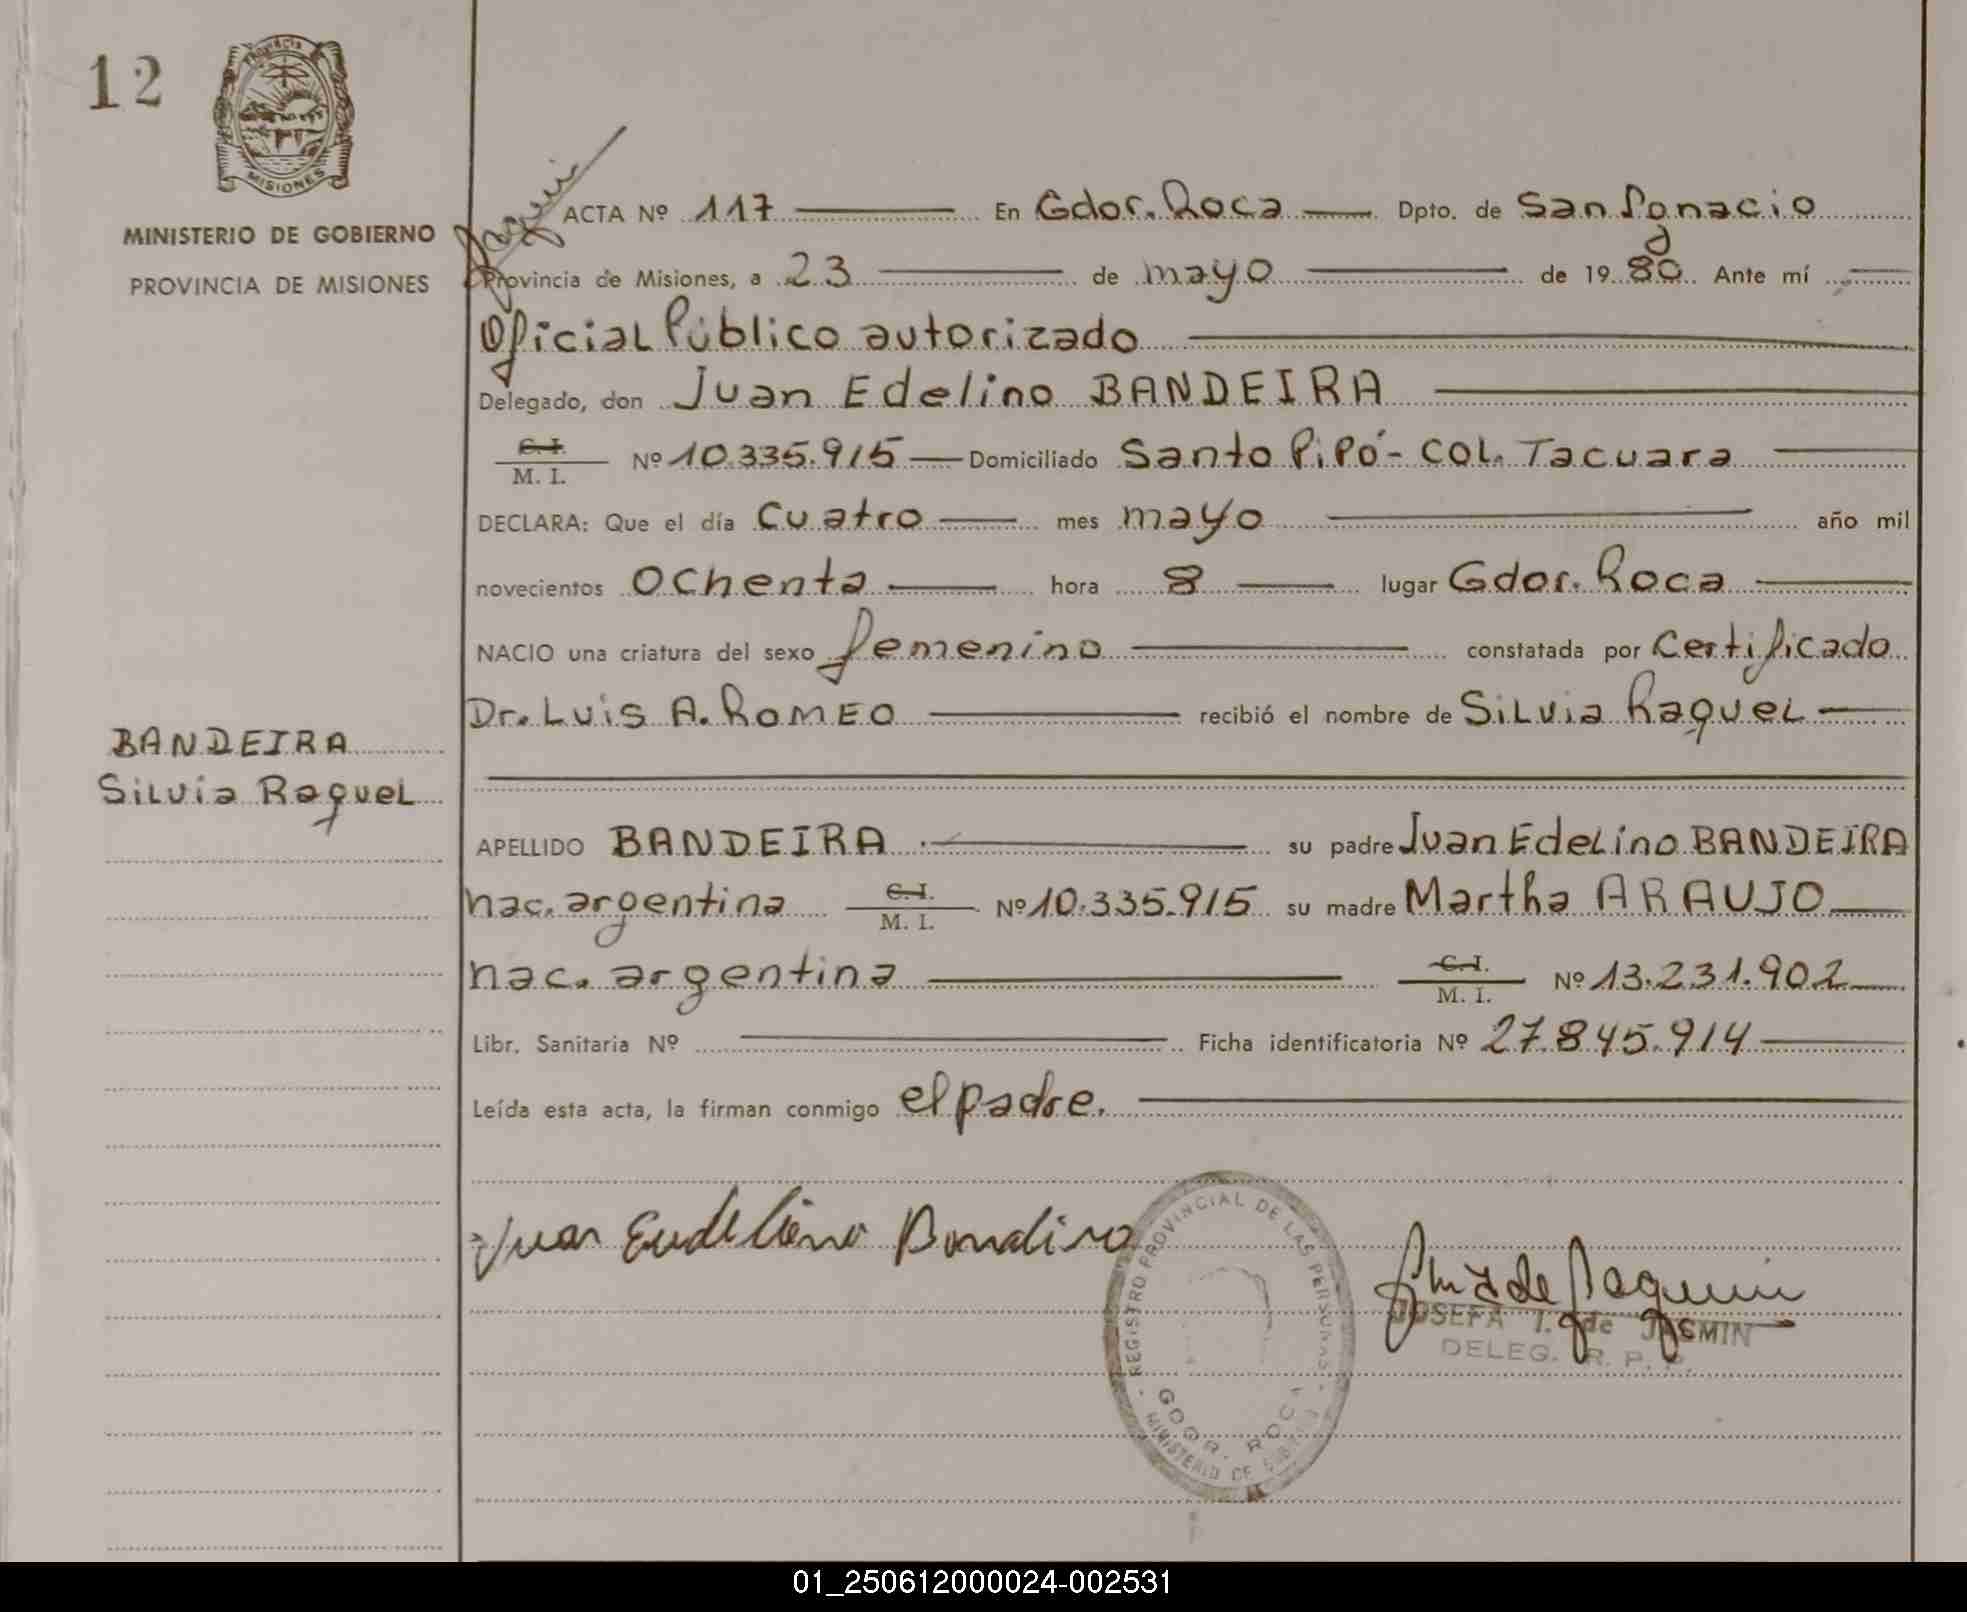 12
Provincia
MISIONES
MINISTERIO DE GOBIERNO
PROVINCIA DE MISIONES
ACTA Nº 117 En Gdor. Roca Dpto. de San Ignacio
Provincia de Misiones, a 23 de mayo de 1980. Ante mí
Oficial Público autorizado
Delegado, don Juan Edelino BANDEIRA
C. I.
M. I. Nº 10.335.915 Domiciliado Santo Pipó - COL. Tacuara
DECLARA: Que el día cuatro mes mayo año mil
novecientos Ochenta hora 8 lugar Gdor. Roca
NACIO una criatura del sexo femenino constatada por Certificado
Dr. Luis A. ROMEO recibió el nombre de Silvia Raquel
BANDEIRA
Silvia Raquel
APELLIDO BANDEIRA su padre Juan Edelino BANDEIRA
nac. argentina C. I. M. I. Nº 10.335.915 su madre Martha ARAUJO
nac. argentina C. I. M. I. Nº 13.231.902
Libr. Sanitaria Nº Ficha identificatoria Nº 27.845.914
Leída esta acta, la firman conmigo el padre.
Juan Eudelino
REGISTRO PROVINCIAL DE LAS PERSONAS
GODR. ROCA
MINISTERIO DE
JOSEFA I. de JASMIN
DELEG. R. P. P.
01_250612000024-002531